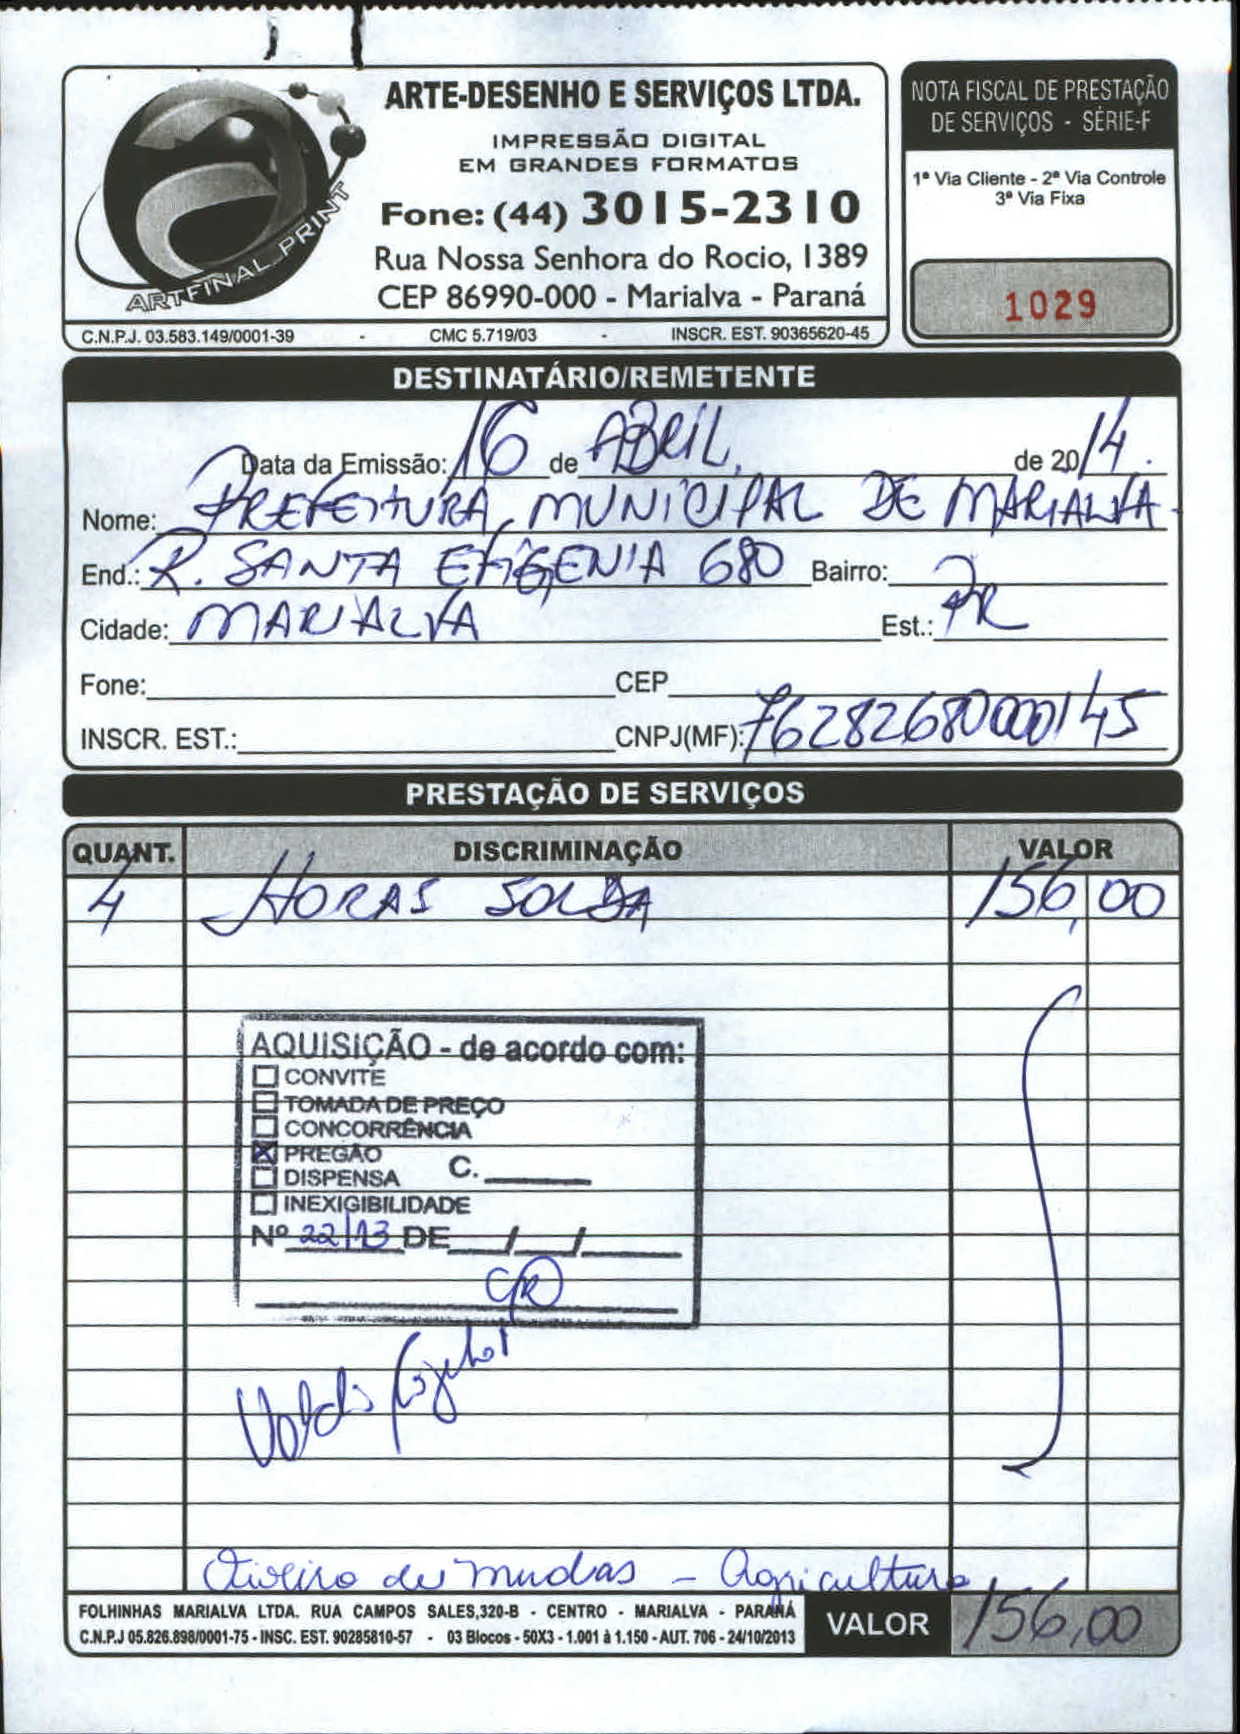 ARTFINAL PRINT
ARTE-DESENHO E SERVIÇOS LTDA.
IMPRESSÃO DIGITAL
EM GRANDES FORMATOS
Fone: (44) 3015-2310
Rua Nossa Senhora do Rocio, 1389
CEP 86990-000 - Marialva - Paraná
C.N.P.J. 03.583.149/0001-39 - CMC 5.719/03 - INSCR. EST. 90365620-45
NOTA FISCAL DE PRESTAÇÃO
DE SERVIÇOS - SÉRIE-F
1ª Via Cliente - 2ª Via Controle
3ª Via Fixa
1029
DESTINATÁRIO/REMETENTE
Data da Emissão: 16 de ABRIL de 2014.
Nome: PREFEITURA MUNICIPAL DE MARIALVA
End.: R. SANTA EFIGENIA 680 Bairro:
Cidade: MARIALVA Est.: PR
Fone: CEP
INSCR. EST.: CNPJ(MF): 76282680000145
PRESTAÇÃO DE SERVIÇOS
QUANT. DISCRIMINAÇÃO VALOR
4 HORAS SOLDA 156,00
AQUISIÇÃO - de acordo com:
CONVITE
TOMADA DE PREÇO
CONCORRÊNCIA
X PREGÃO
DISPENSA C.
INEXIGIBILIDADE
Nº 22/13 DE / /
Viveiro de mudas - Agricultura
FOLHINHAS MARIALVA LTDA. RUA CAMPOS SALES,320-B - CENTRO - MARIALVA - PARANÁ
C.N.P.J 05.826.898/0001-75 - INSC. EST. 90285810-57 - 03 Blocos - 50X3 - 1.001 à 1.150 - AUT. 706 - 24/10/2013
VALOR 156,00